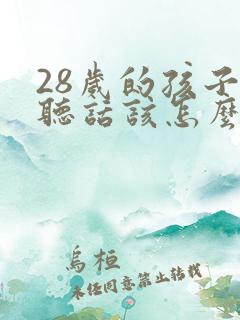 28歲的孩子
聽話該怎麼
烏桓
未經同意禁止轉載